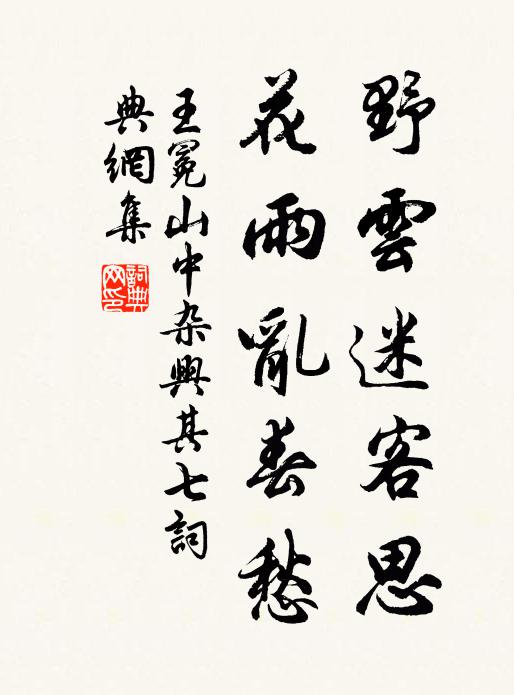 野雲迷客思
花雨亂春愁
王冕山中杂興其七詞
典網集
詞典网印